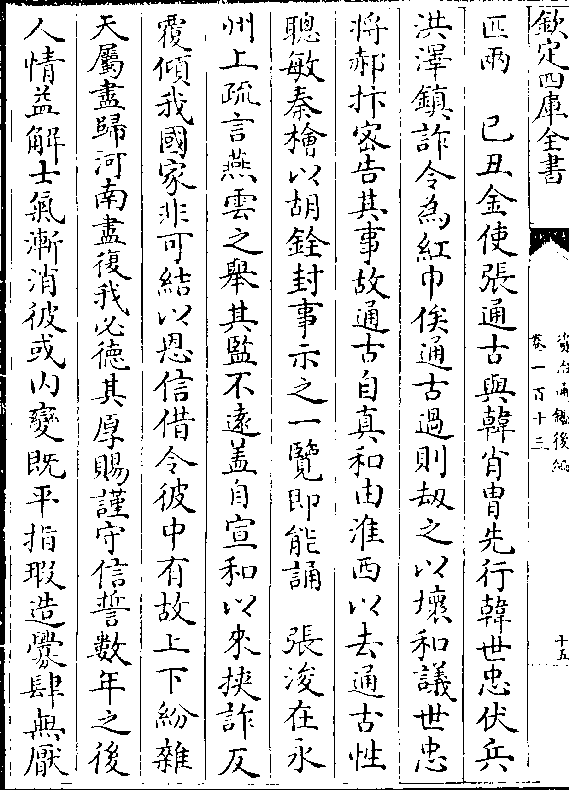 欽定四庫全書
資治通鑑後編
卷一百十三
十五
匹兩　己丑金使張通古與韓肖胄先行韓世忠伏兵
洪澤鎮詐令為紅巾俟通古過則刼之以壞和議世忠
將郝抃密告其事故通古自真和由淮西以去通古性
聰敏秦檜以胡銓封事示之一覽即能誦　張浚在永
州上疏言燕雲之舉其監不逺盖自宣和以來挾詐反
覆傾我國家非可結以恩信借令彼中有故上下紛雜
天屬盡歸河南盡復我必德其厚賜謹守信誓數年之後
人情益解士氣漸消彼或内變既平指瑕造釁肆無厭